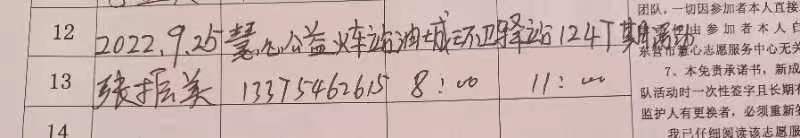 12 2022.9.25慧心公益火车站油城环卫驿站124T期活动
13 张振美 13375462615 8:00 11:00
14
团队,一切因参加者本人直接
由参加者本人自
东营市慧心志愿服务中心无关
7、本免责承诺书,新成
队活动时一次性签字且长期有
监护人有更换者,必须重新签
我已仔细阅读该志愿服